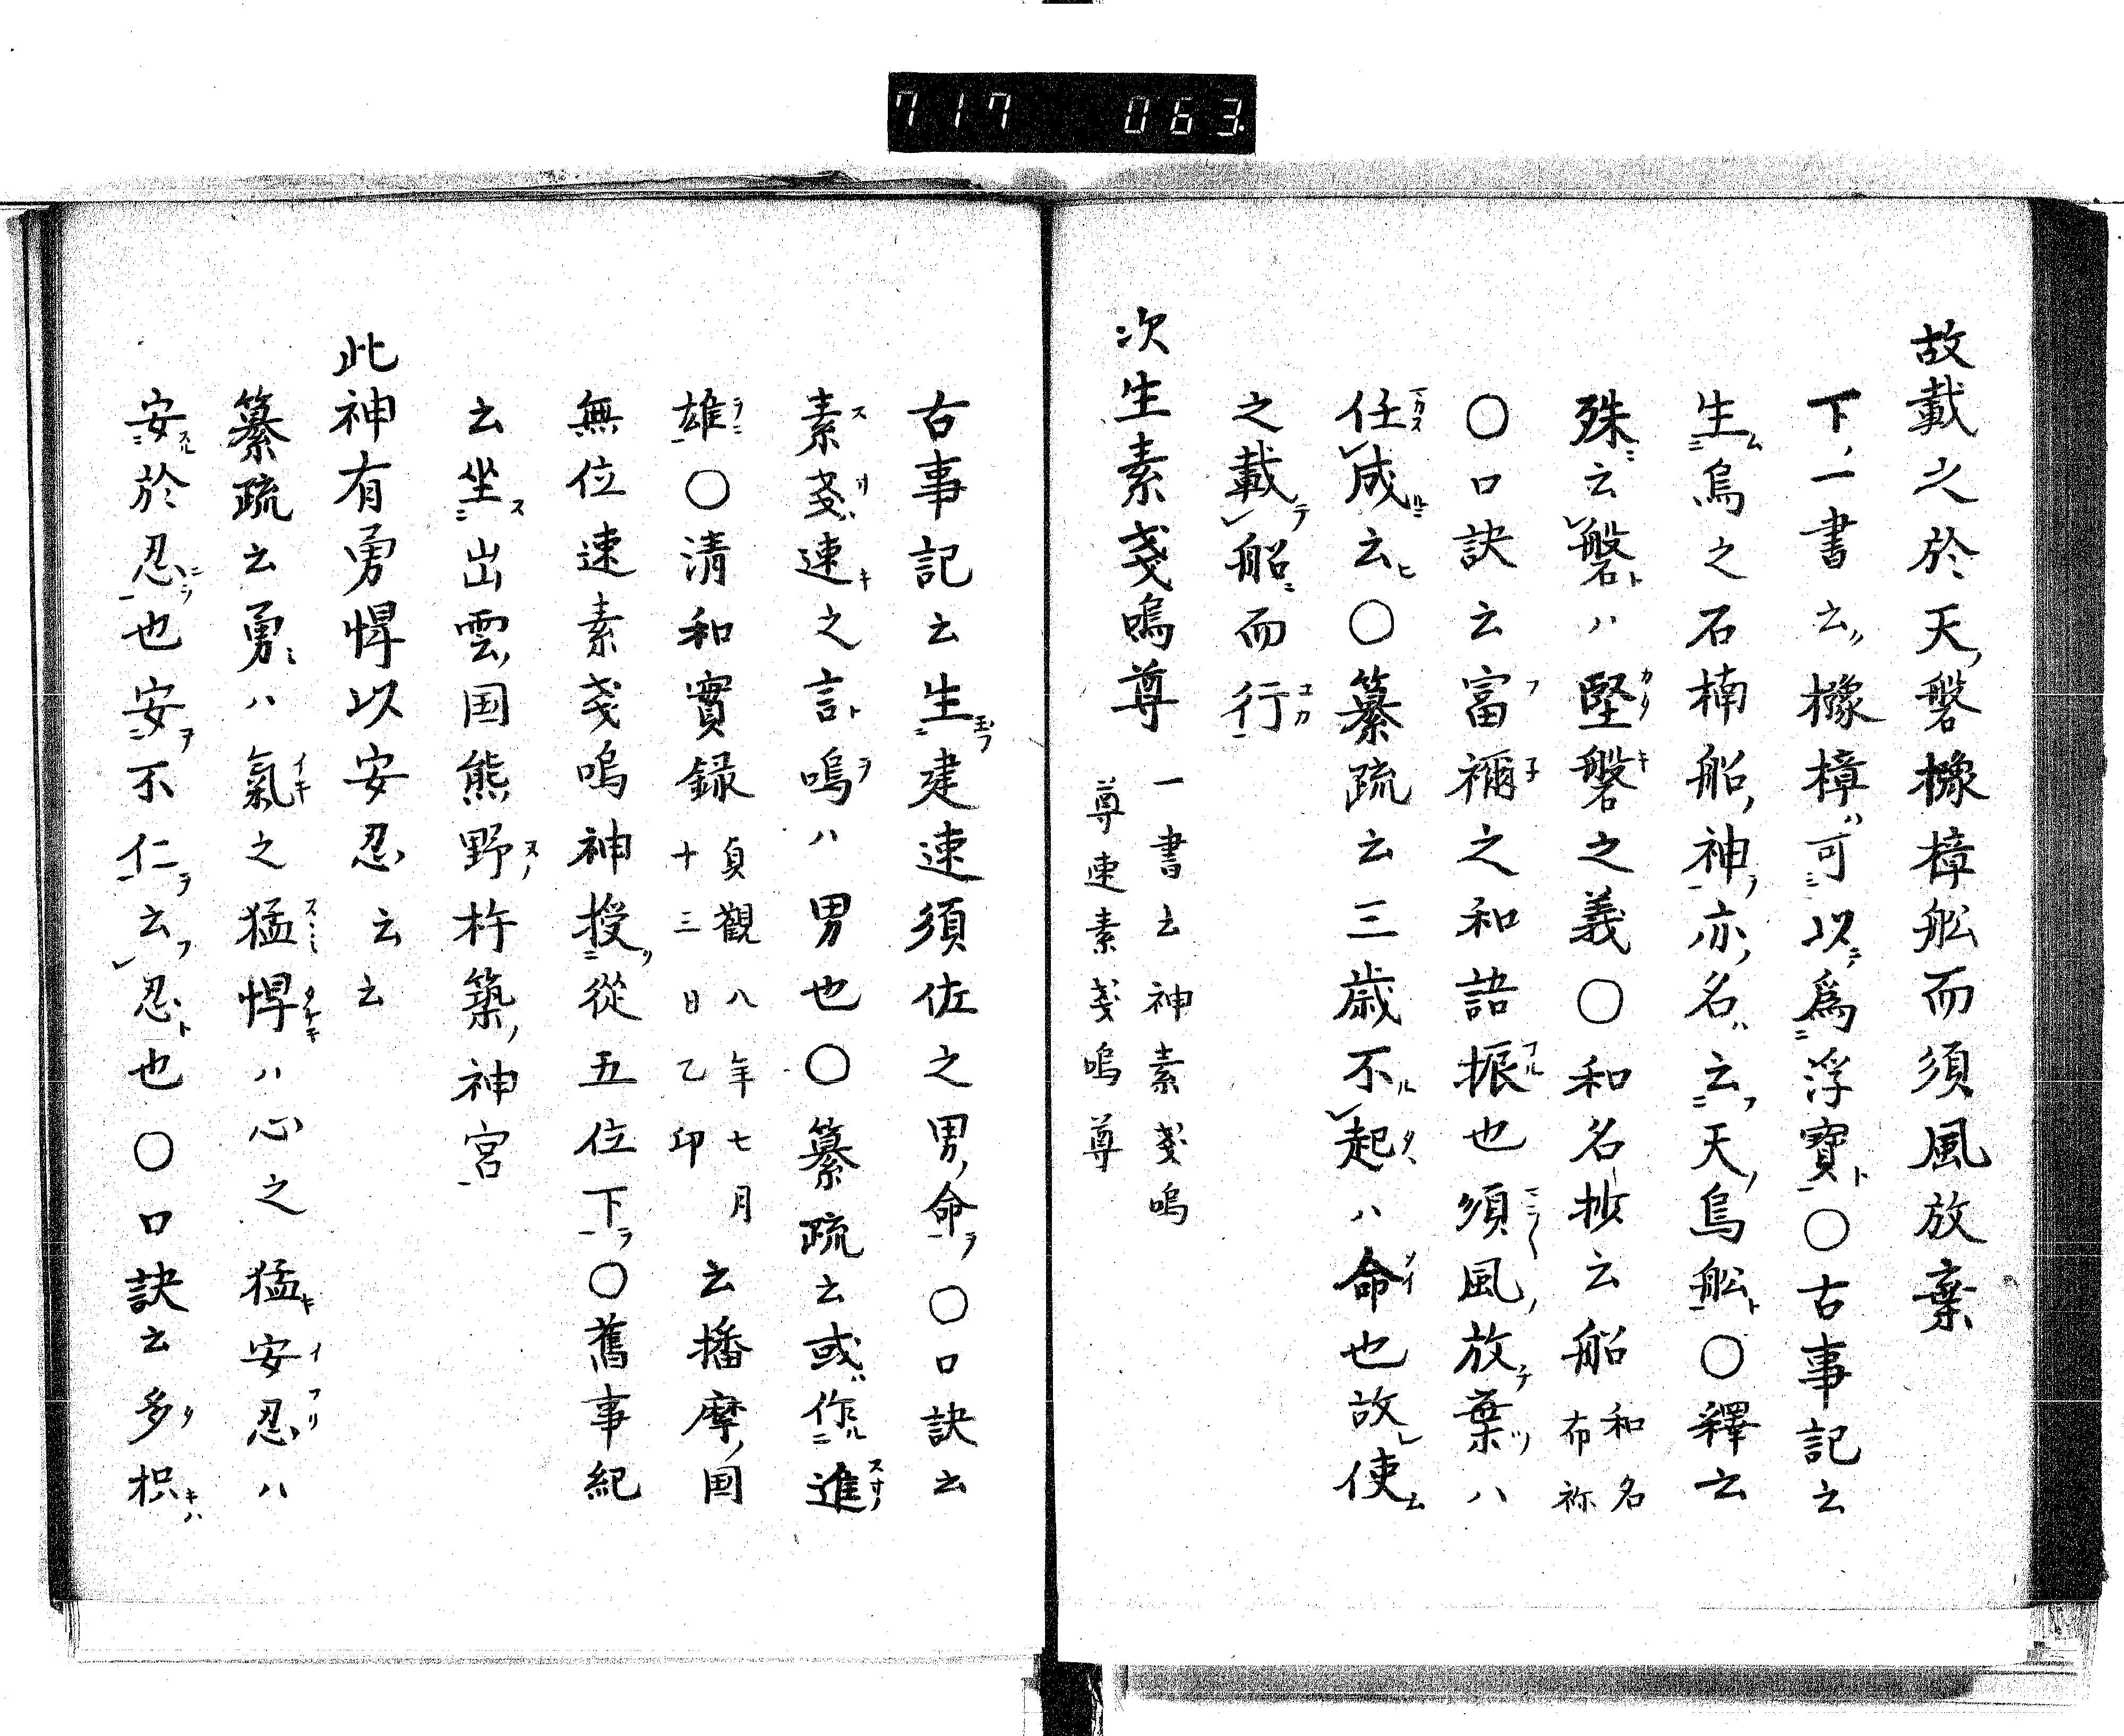 717 063
故載之於天磐櫲樟舩而須風放棄
下一書云櫲樟ハ可以為浮寶ト〇古事記云
生烏之石楠船神亦名ハ云天烏舩ト〇釋云
殊ニ云磐トハ堅磐之義〇和名抄云船和名布祢
〇口訣云富禰之和語振也須風放棄ハ
任成云〇纂疏云三歳不起ハ命也故使
之載船而行
次生素戔嗚尊 一書云神素戔嗚尊速素戔嗚尊
古事記云生建速須佐之男命〇口訣云
素戔速之言嗚ハ男也〇纂疏云或作進
雄〇清和實録貞観八年七月十三日乙卯云播摩国
無位速素戔嗚神授從五位下〇舊事紀
云坐出雲国熊野杵築神宮
此神有勇悍以安忍云云
纂疏云勇ハ氣之猛悍ハ心之猛安忍ハ
安於忍也安不仁云忍ト也〇口訣云多枳